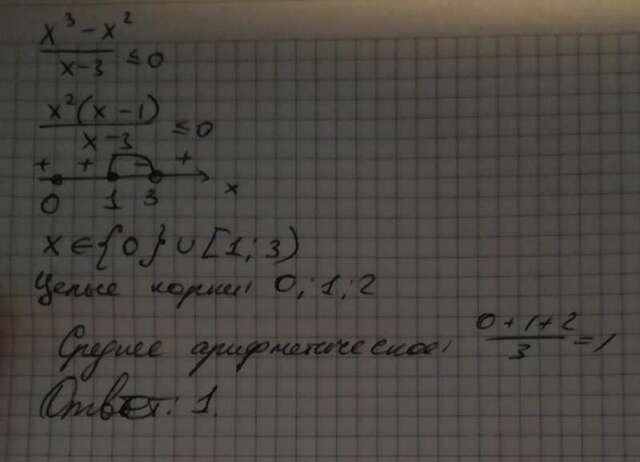 x³ - x²
x - 3 ≤ 0
x²(x - 1)
x - 3 ≤ 0
+ + - +
0 1 3 x
x ∈ {0} ∪ [1; 3)
Целые корни: 0; 1; 2
Среднее арифметическое: (0+1+2)/3 = 1
Ответ: 1.